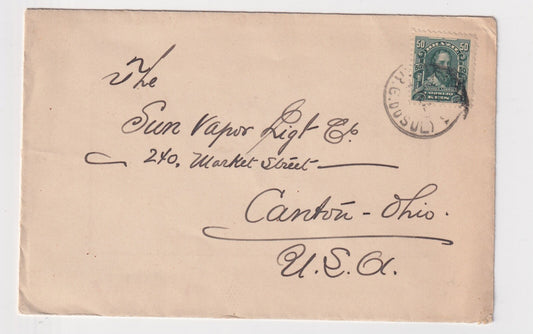 50 BRAZIL 50
CORREIO
REIS
R.G.DO SUL)
The
Sun Vapor Ligt Co.
240, Market Street
Canton - Ohio.
U.S.A.